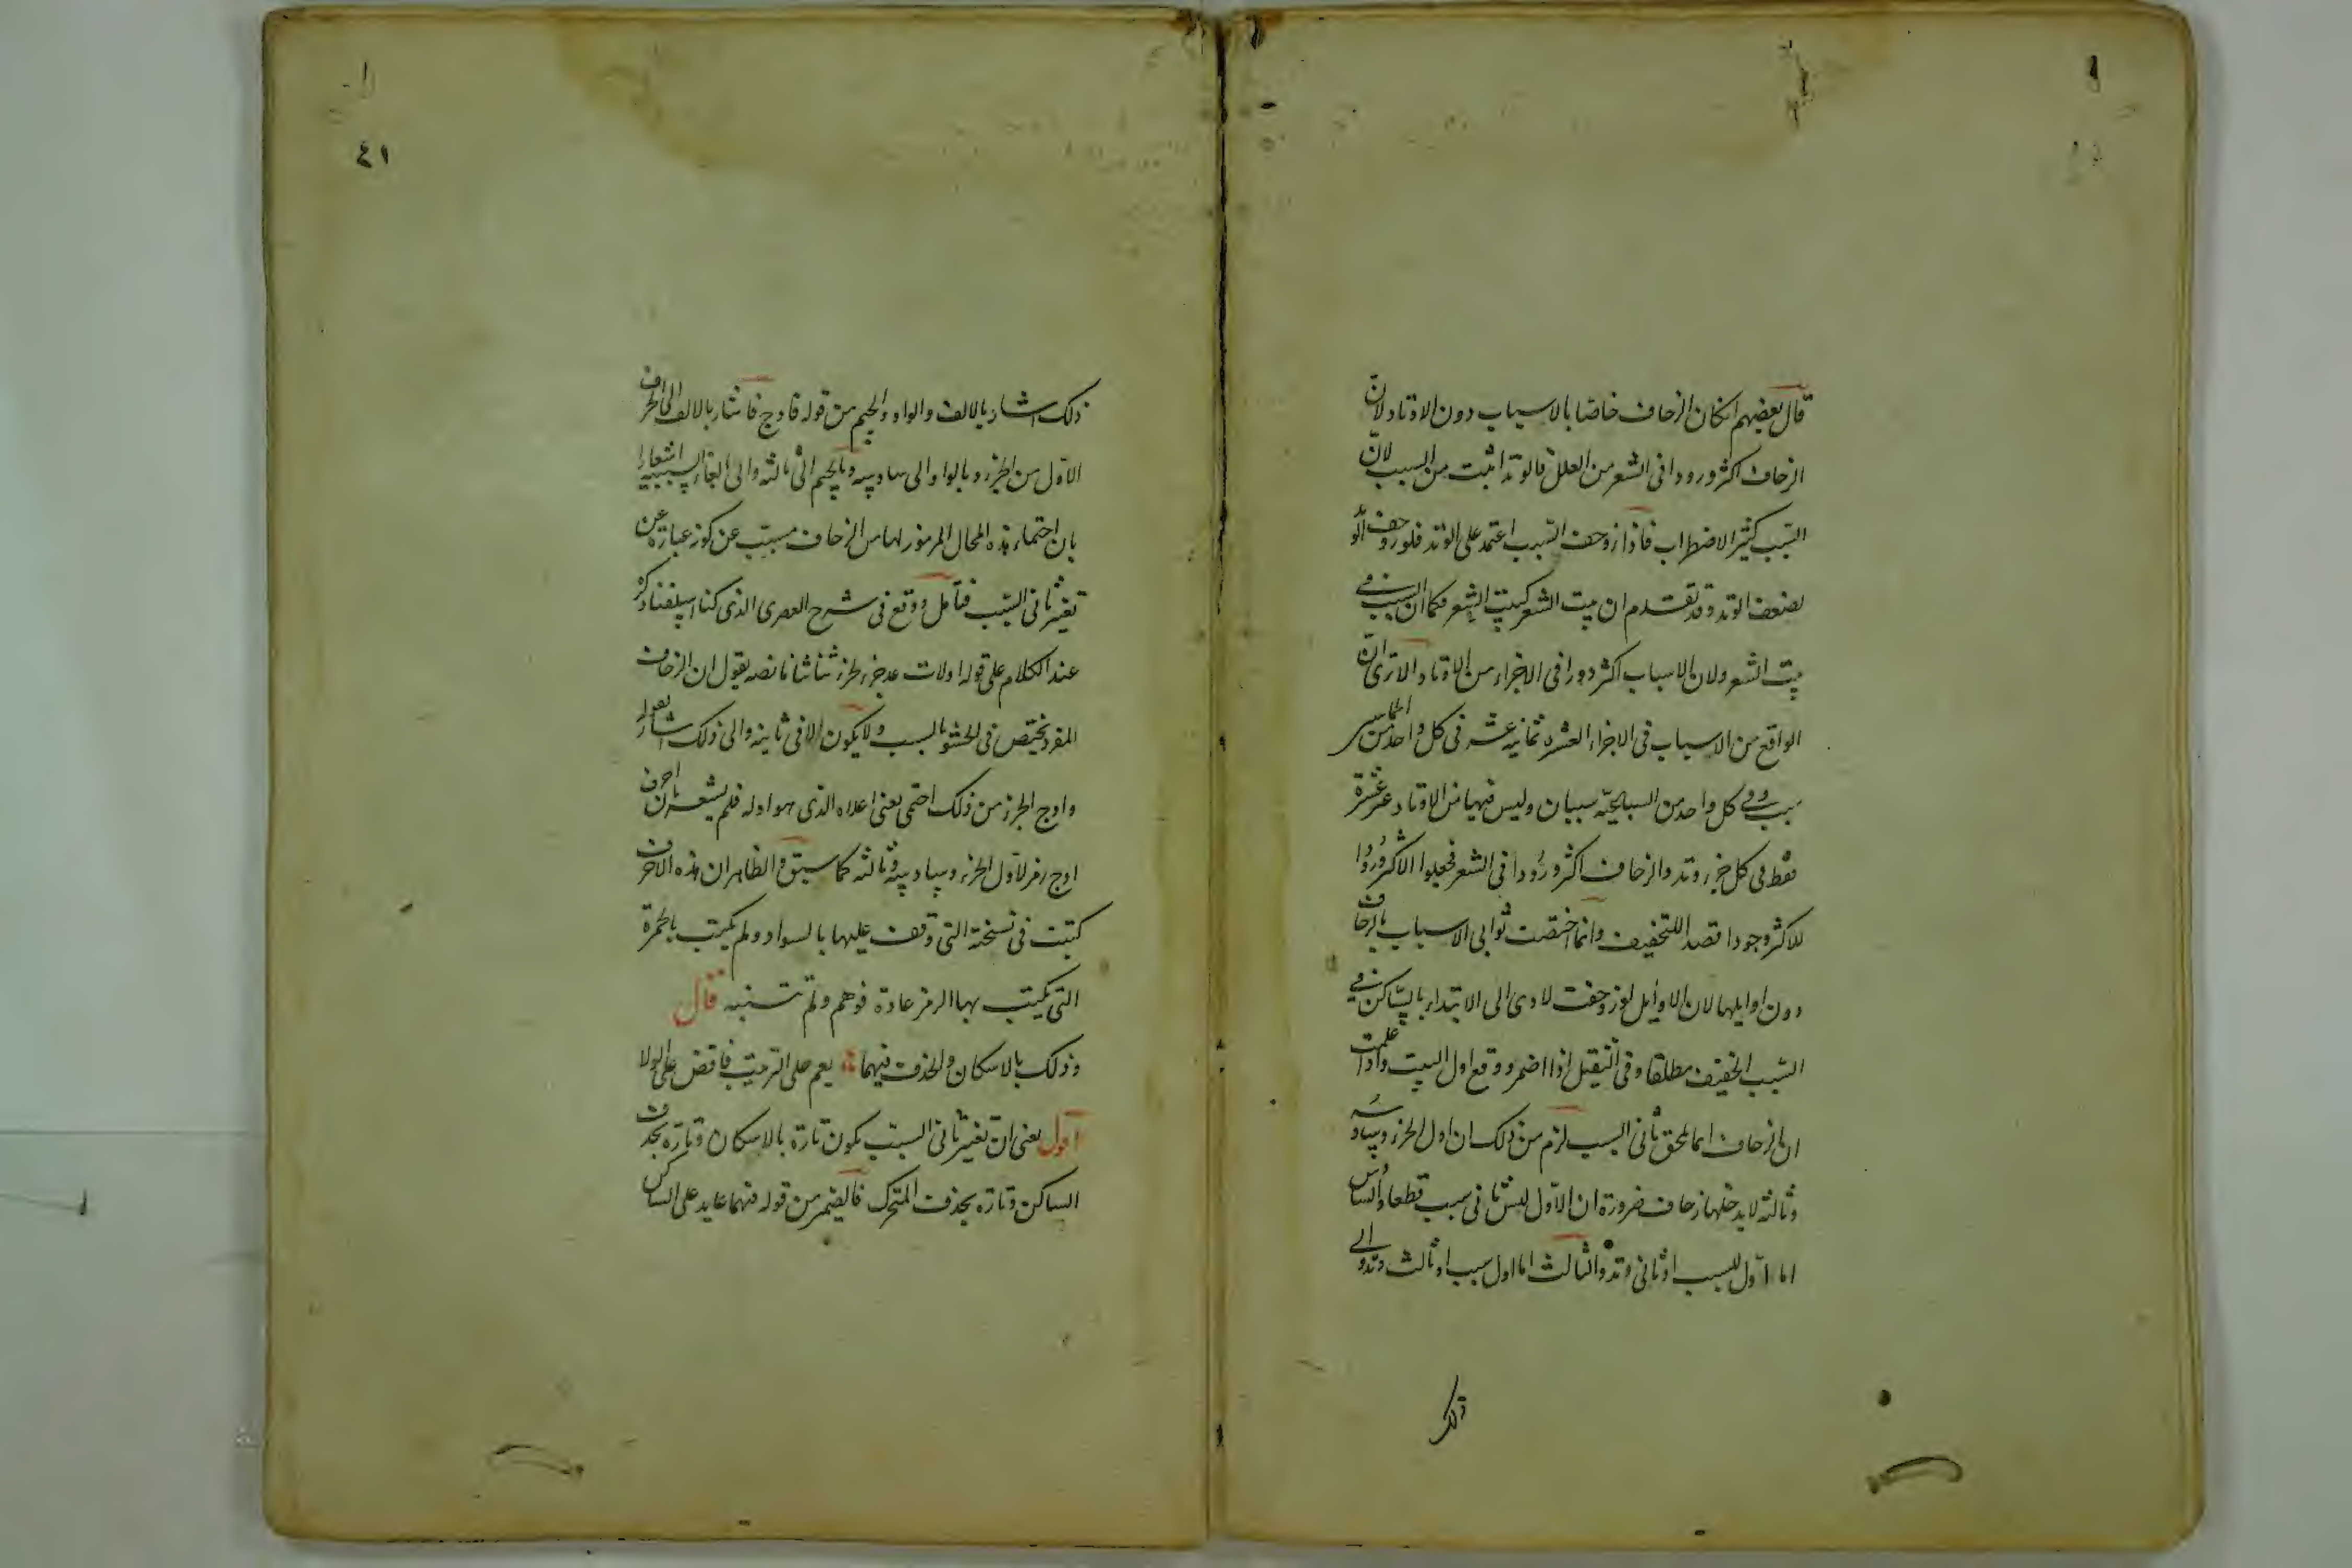 قال بعضهم انكان الزحاف خاصا بالاسباب دون الاوتاد لانّ
الزحاف اكثر ورودا فى الشعر من العلل فالوتد اثبت من السبب لانّ
السّبب كثير الاضطراب فاذا زوحف السّبب اعتمد على الوتد فلو زوحف الوتد
لضعف الوتد وقد تقدم ان بيت الشعر كبيت الشعر فكما ان السبب فى
بيت الشعر ولان الاسباب اكثر دورا فى الاجزاء من الاوتاد الا ترى انّ
الواقع من الاسباب فى الاجزاء العشرة ثمانية عشر فى كل واحد من الخماسى
سبب وفى كل واحد من السباعيّة سببان وليس فيها من الاوتاد غير عشرة
فقط فى كل جزء وتد والزحاف اكثر ورودا فى الشعر فجعلوا الاكثر ورودا
للاكثر وجودا قصدا للتخفيف وانما اختصت ثوانى الاسباب بالزحاف
دون اوايلها لان الاوايل لو زوحفت لادى الى الابتداء بالسّاكن فى
السّبب الخفيف مطلقا وفى الثقيل اذا اضمر ووقع اول البيت واذا علمت
ان الزحاف انما يلحق ثانى السبب لزم من ذلك ان اول الجزء وسادسه
وثالثه لا يدخلها زحاف ضرورة ان الاول ليس ثانى سبب قطعا والسادس
اما اول لسبب او ثانى وتد والثالث اما اول سبب او ثالث وتد والى
ذلك
٤١
ذلك اشار بالالف والواو والجيم من قوله فاوج فاشار بالالف الى الحرف
الاول من الجزء وبالواو الى سادسه وبالجيم الى ثالثه والى الفاء السببية اشعارا
بان احتماء هذه المحال المرموز لها من الزحاف مسبّب عن كونه عبارة عن
تغيير ثانى السّبب فتأمل ووقع فى شرح العصرى الذى كنا اسلفنا ذكره
عند الكلام على قوله اولات عد جزء لجزء ثنا ثنا ما نصه يقول ان الزحاف
المفرد يختص فى الحشو بالسبب ولا يكون الا فى ثانيه والى ذلك اشار بقوله
واوج الجزء من ذلك احتمى يعنى اعلاه الذى هو اوله فلم يشعر بان احرف
اوج رمز لاول الجزء وسادسه وثالثه كما سبق والظاهر ان هذه الاحرف
كتبت فى نسخته التى وقف عليها بالسواد ولم يكتب بالحمرة
التى يكتب بها الرمز عادة فوهم ولم يتنبه قال
وذلك بالاسكان والحذف فيهما يعم على الترتيب فاقض على الولا
اقول يعنى انّ تغيير ثانى السبب يكون تارة بالاسكان وتارة بحذف
الساكن وتارة بحذف المتحرك فالضمير من قوله فيهما عايد على الساكن